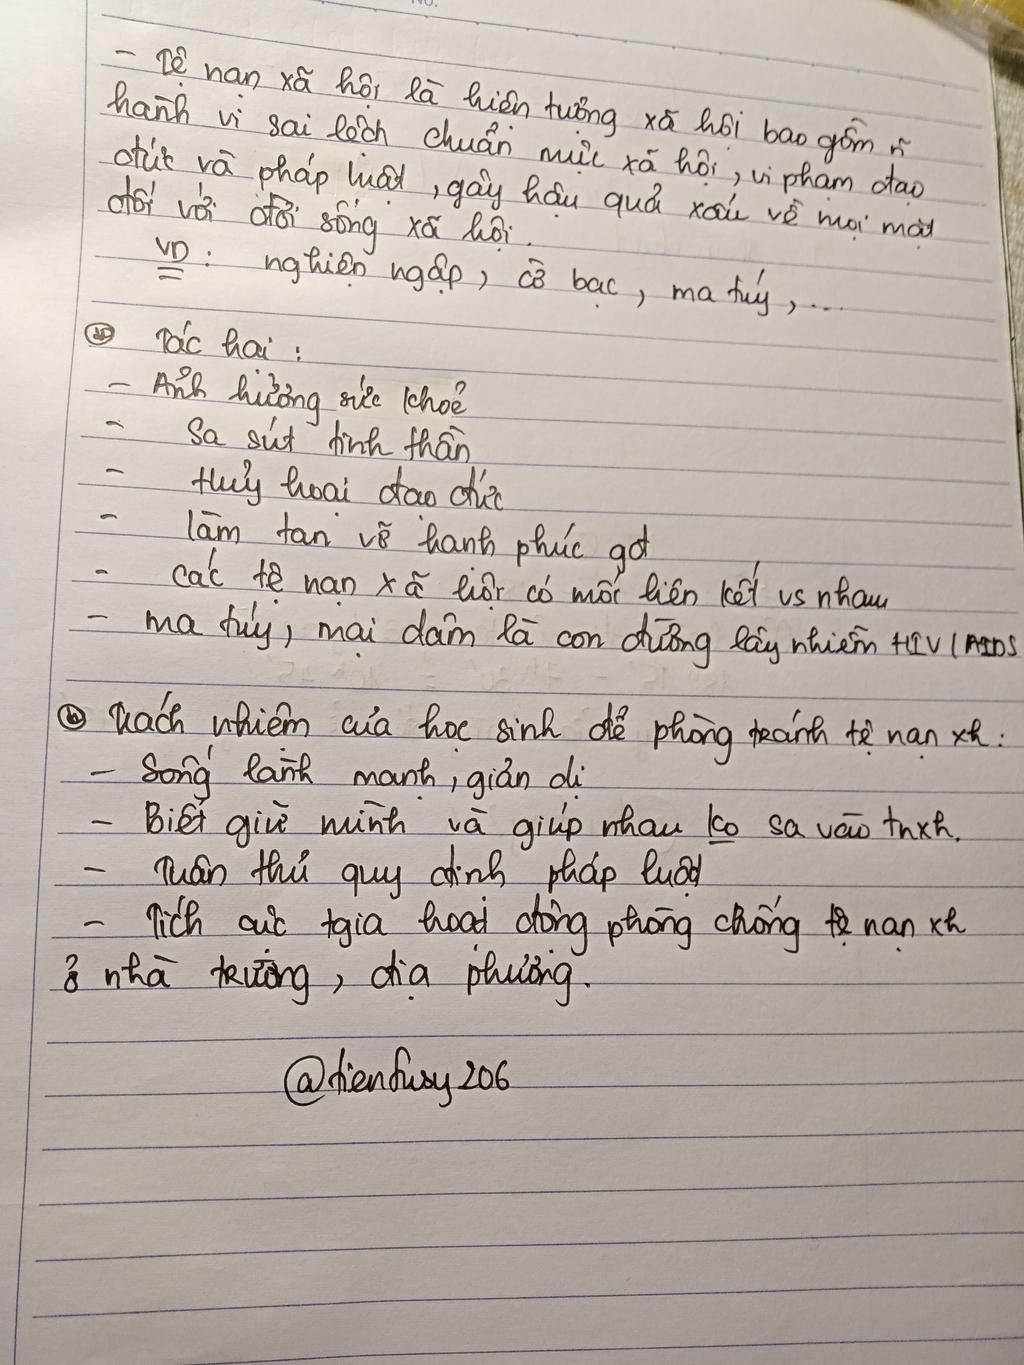 No.
- Tệ nạn xã hội là hiện tượng xã hội bao gồm n~
hành vi sai lệch chuẩn mực xã hội, vi phạm đạo
đức và pháp luật, gây hậu quả xấu về mọi mặt
đối với đời sống xã hội.
VD: nghiện ngập, cờ bạc, ma túy, ...
Tác hại:
- Ảnh hưởng sức khoẻ
- Sa sút tinh thần
- Huỷ hoại đạo đức
- làm tan vỡ hạnh phúc gđ
- các tệ nạn xã hội có mối liên kết vs nhau
- ma túy, mại dâm là con đường lây nhiễm HIV/AIDS
Trách nhiệm của học sinh để phòng tránh tệ nạn xh:
- Sống lành mạnh, giản dị
- Biết giữ mình và giúp nhau ko sa vào tnxh.
- Tuân thủ quy định pháp luật
- Tích cực tgia hoạt động phòng chống tệ nạn xh
ở nhà trường, địa phương.